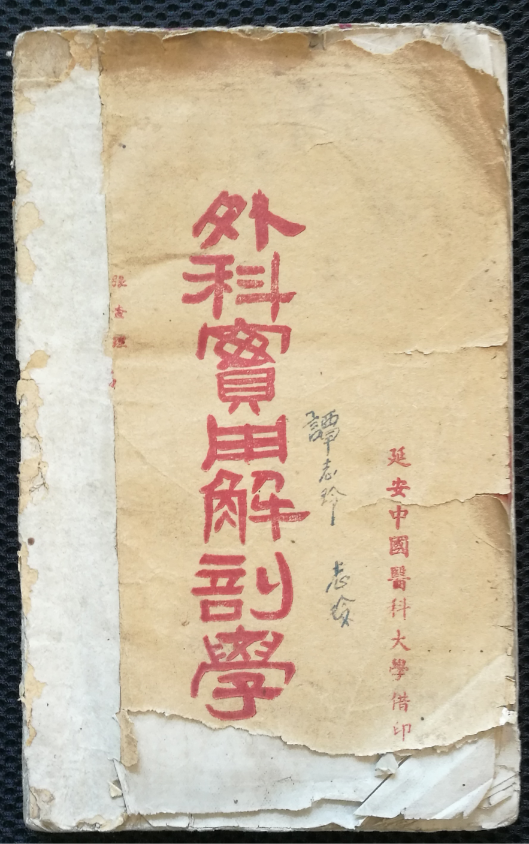 延安中國醫科大學借印
譚志玲 志玲
外科實用解剖學
張